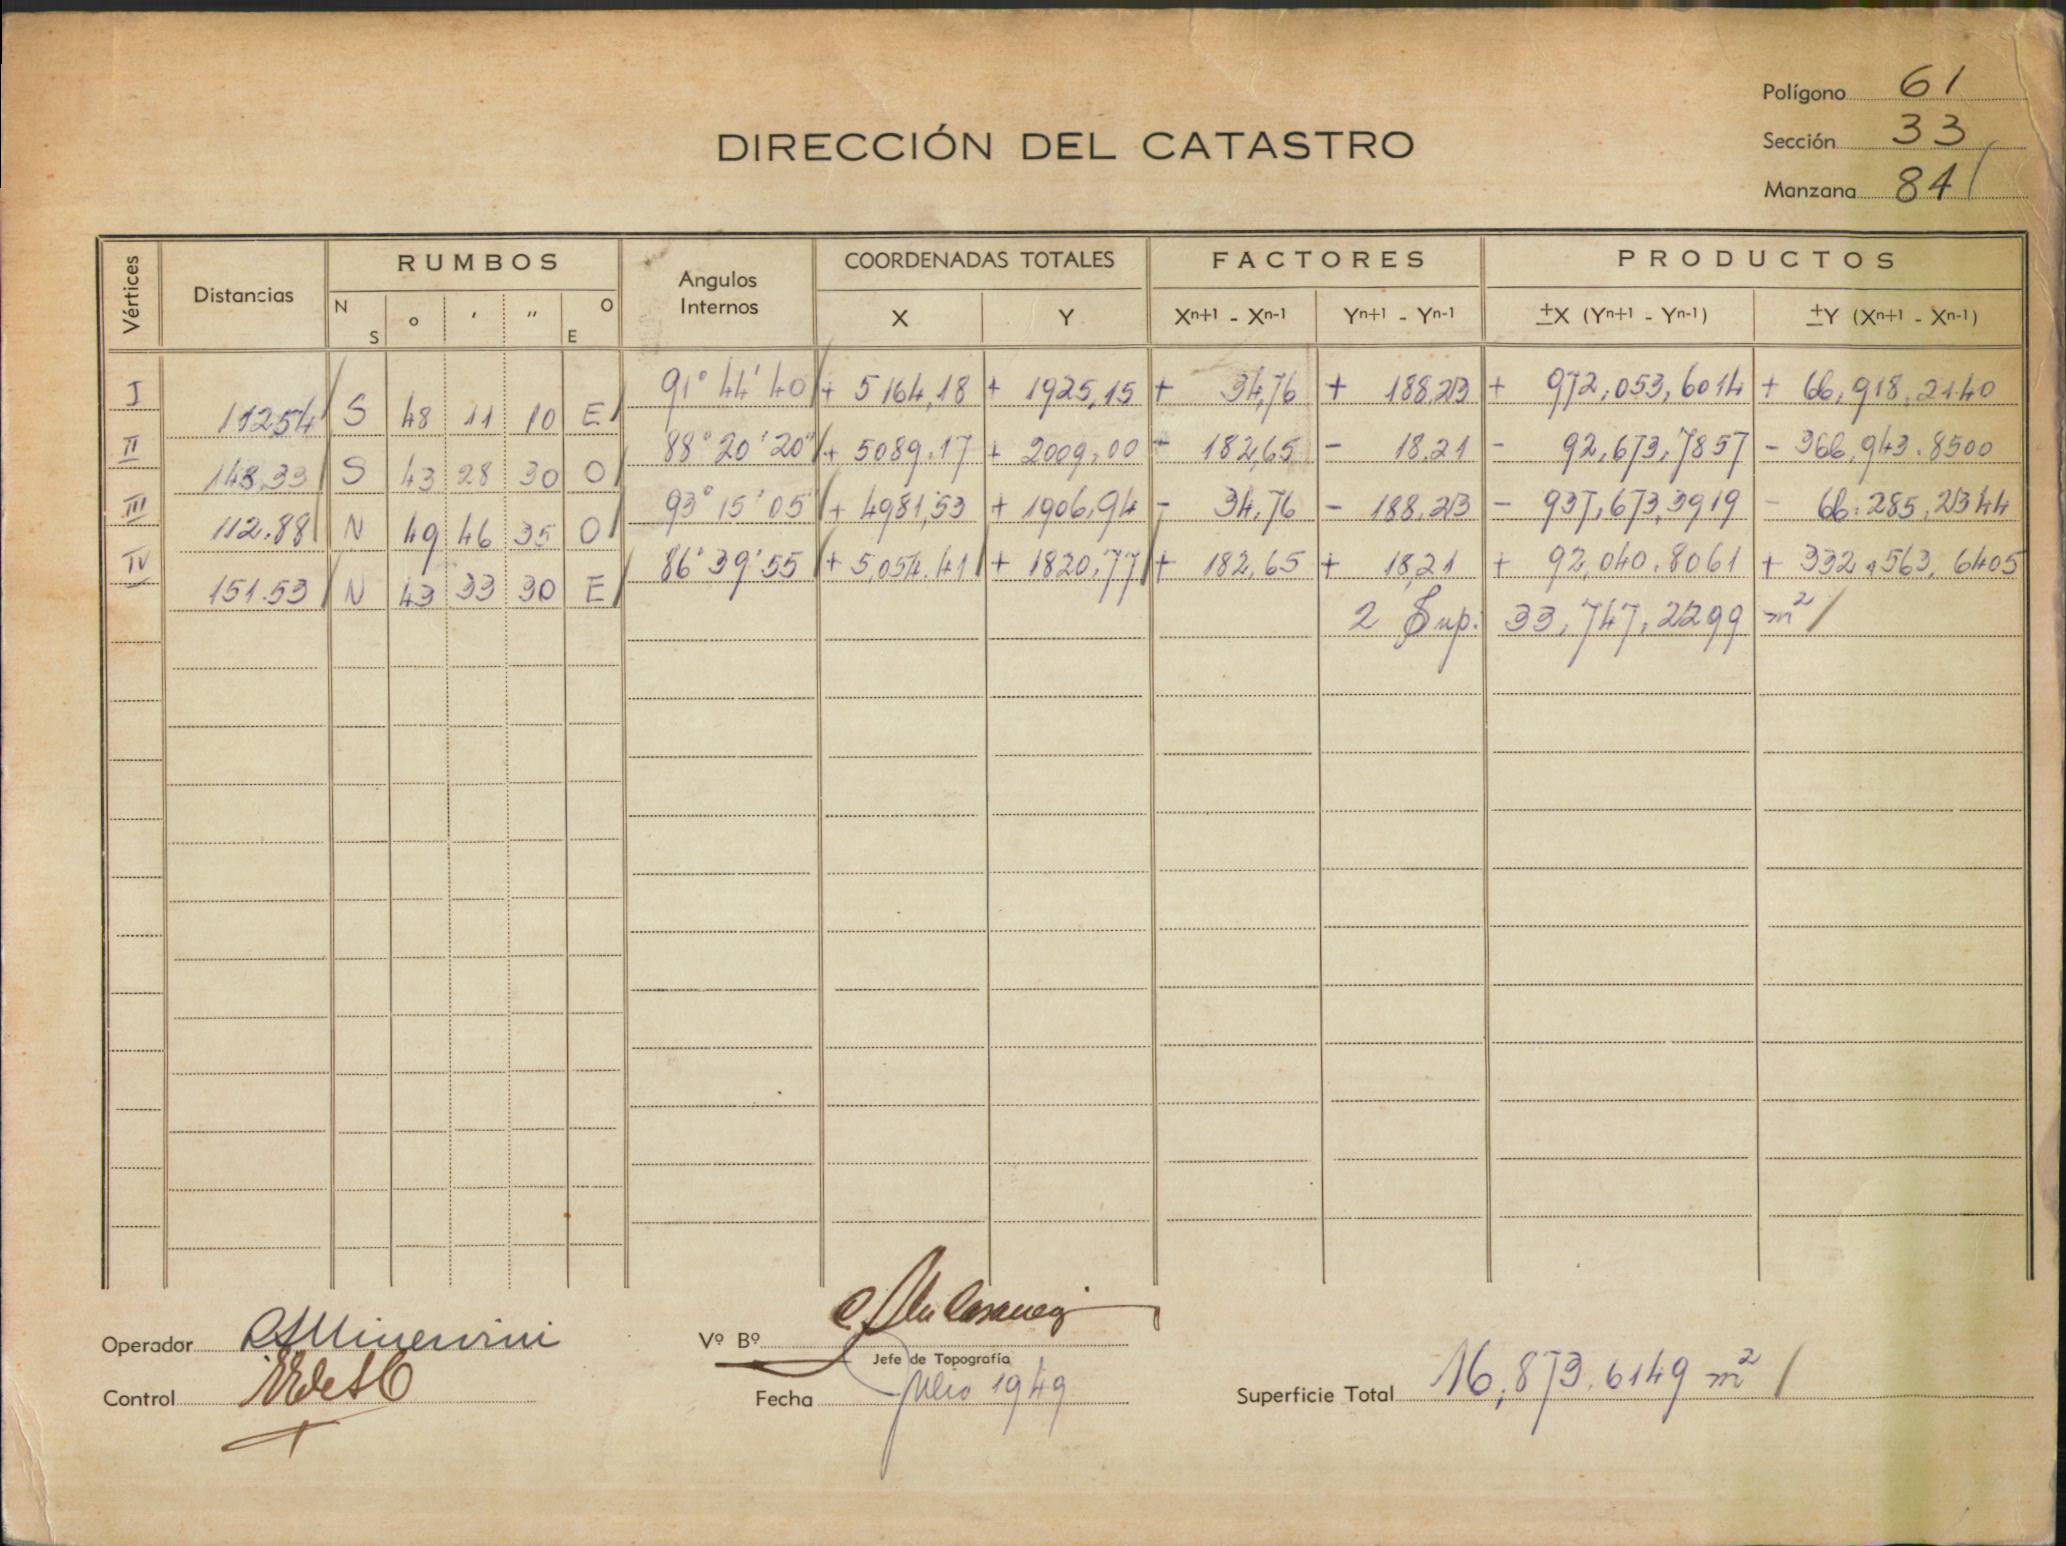 Polígono 61
DIRECCIÓN DEL CATASTRO
Sección 33
Manzana 84
Vértices Distancias RUMBOS Angulos Internos COORDENADAS TOTALES FACTORES PRODUCTOS
N S ° ' " O E X Y Xn+1 - Xn-1 Yn+1 - Yn-1 ±X (Yn+1 - Yn-1) ±Y (Xn+1 - Xn-1)
I 91° 44' 40 + 5164,18 + 1925,15 + 34,76 + 188,23 + 972,053,6014 + 66,918,2140
112.54 S 48 11 10 E
II 88° 20' 20" + 5089.17 + 2009,00 - 182,65 - 18.21 - 92,673,7857 - 366,943.8500
148.33 S 43 28 30 O
III 93° 15' 05" + 4981,53 + 1906,94 - 34,76 - 188,23 - 937,673,3919 - 66.285,2344
112.88 N 49 46 35 O
IV 86° 39' 55 + 5,054.41 + 1820,77 + 182,65 + 18,21 + 92,040.8061 + 332,563,6405
151.53 N 43 33 30 E
2 Sup: 33,747,2299 m²
Operador RAMinervini
Vº Bº
Jefe de Topografía
Control
Fecha Julio 1949
Superficie Total 16,873.6149 m²